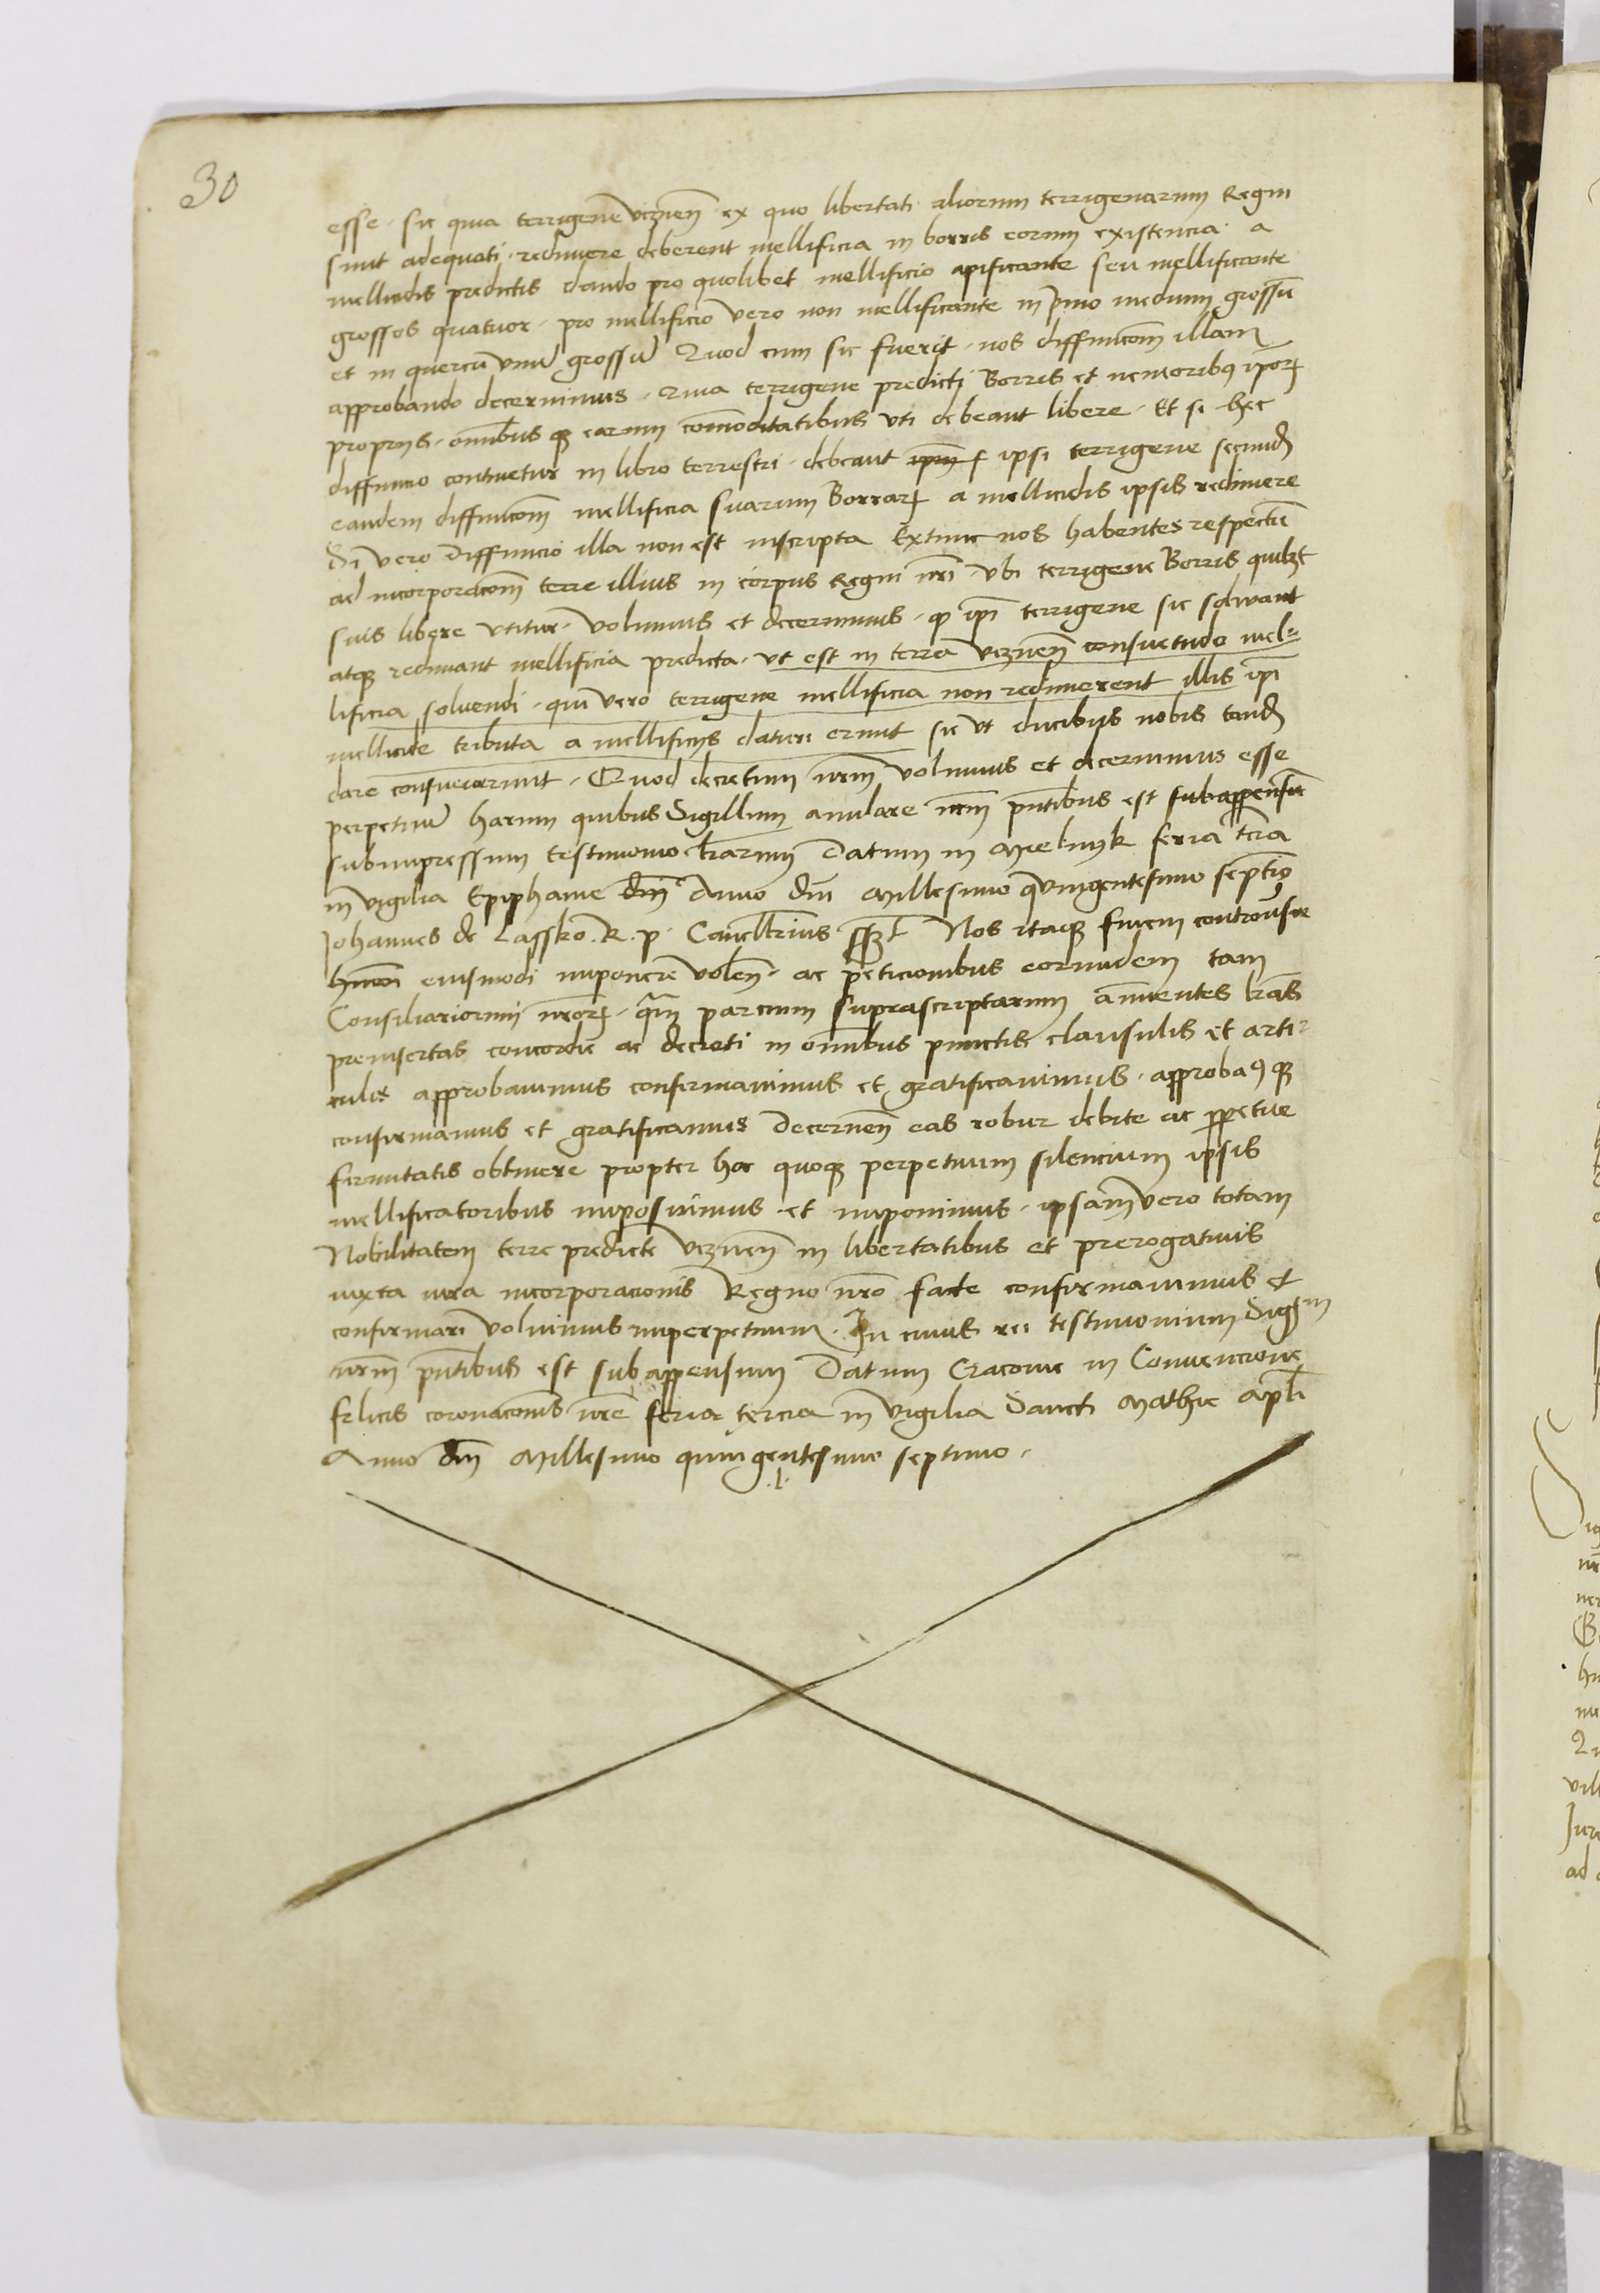 30
esse · sic quia terrigene viznen̄ ex quo libertati aliorum terrigenarum Regni
sunt adequati · redimere deberent mellificia in borris eorum existencia · a
mellicidis predictis dando pro quolibet mellificio apificante seu mellificante
grossos quatuor · pro mellificio vero non mellificante in pino medium grossū
et in quercu vnū grossū Quod cum sic fuerit · nos diffinicōm illam
approbando decernimus · Quia terrigene predicti Borris et nemoribꝰ ipoꝝ
proprijs · omībus qꝫ earum commoditatibus vti debeant libere · Et si hec
diffinicio continetur in libro terrestri · debeant ipsi terrigene secund̄
eandem diffinicōm mellificia suarum Borraꝝ a mellicidis ipsis redimere
Si vero diffinicio illa non est inscripta Extunc nos habentes respectū
ad incorporacōm terre illius in corpus Regni nrī · vbi terrigene Borris quilꝫt
suis libere vtitur · volumus et decernimus · qꝫ ipī terrigene sic soluant
atqꝫ redimant mellificia predicta · vt est in terra viznen̄ consuetudo mel-
lificia soluendi · qui vero terrigene mellificia non redimerent illis ipī
mellicide tributa a mellificijs daturi erunt sic vt ducibus nobis tand̄
dare consueuerunt · Quod decretum nrm̄ volumus et decernimus esse
perpetuū harum quibus Sigillum anulare nrm̄ pn̄tibus est subappensū
subimpressum testimonio lrarum Datum in Mielnyk feria tcia
in vigilia Epiphanie dnī Anno dnī Millesimo qvingentesimo septīo
Johannes de Lassko · R · p · Cancellrius sszt Nos itaqꝫ finem controusie
hmōi eiusmodi imponere volen̄ · ac peticionibus eorundem tam
Consiliariorum nroꝝ · qm̄ parcium suprascriptarum annuentes lras
preinsertas concordie ac decreti in omībus punctis clausulis et arti-
culis approbauimus confirmauimus et gratificauimus · approbaꝰ qꝫ
confirmamus et gratificamus Decernen̄ eas robur debite ac ꝑpetue
firmitatis obtinere propter hoc quoqꝫ perpetuum silencium ipsis
mellificatoribus imposuimus et imponimus · ipsam vero totam
Nobilitatem terre predicte viznen̄ in libertatibus et prerogatiuis
iuxta iura incorporacionis Regno nro facte confirmauimus et
confirmari voluimus imperpetuum · In cuius rei testimonium Sigm
nrm̄ pn̄tibus est subappensum Datum Cracouie in Conuencione
felicis coronacōnis nre feria tercia in vigilia Sancti Mathie Apli
Anno dnī Millesimo quingentesimo septimo ·